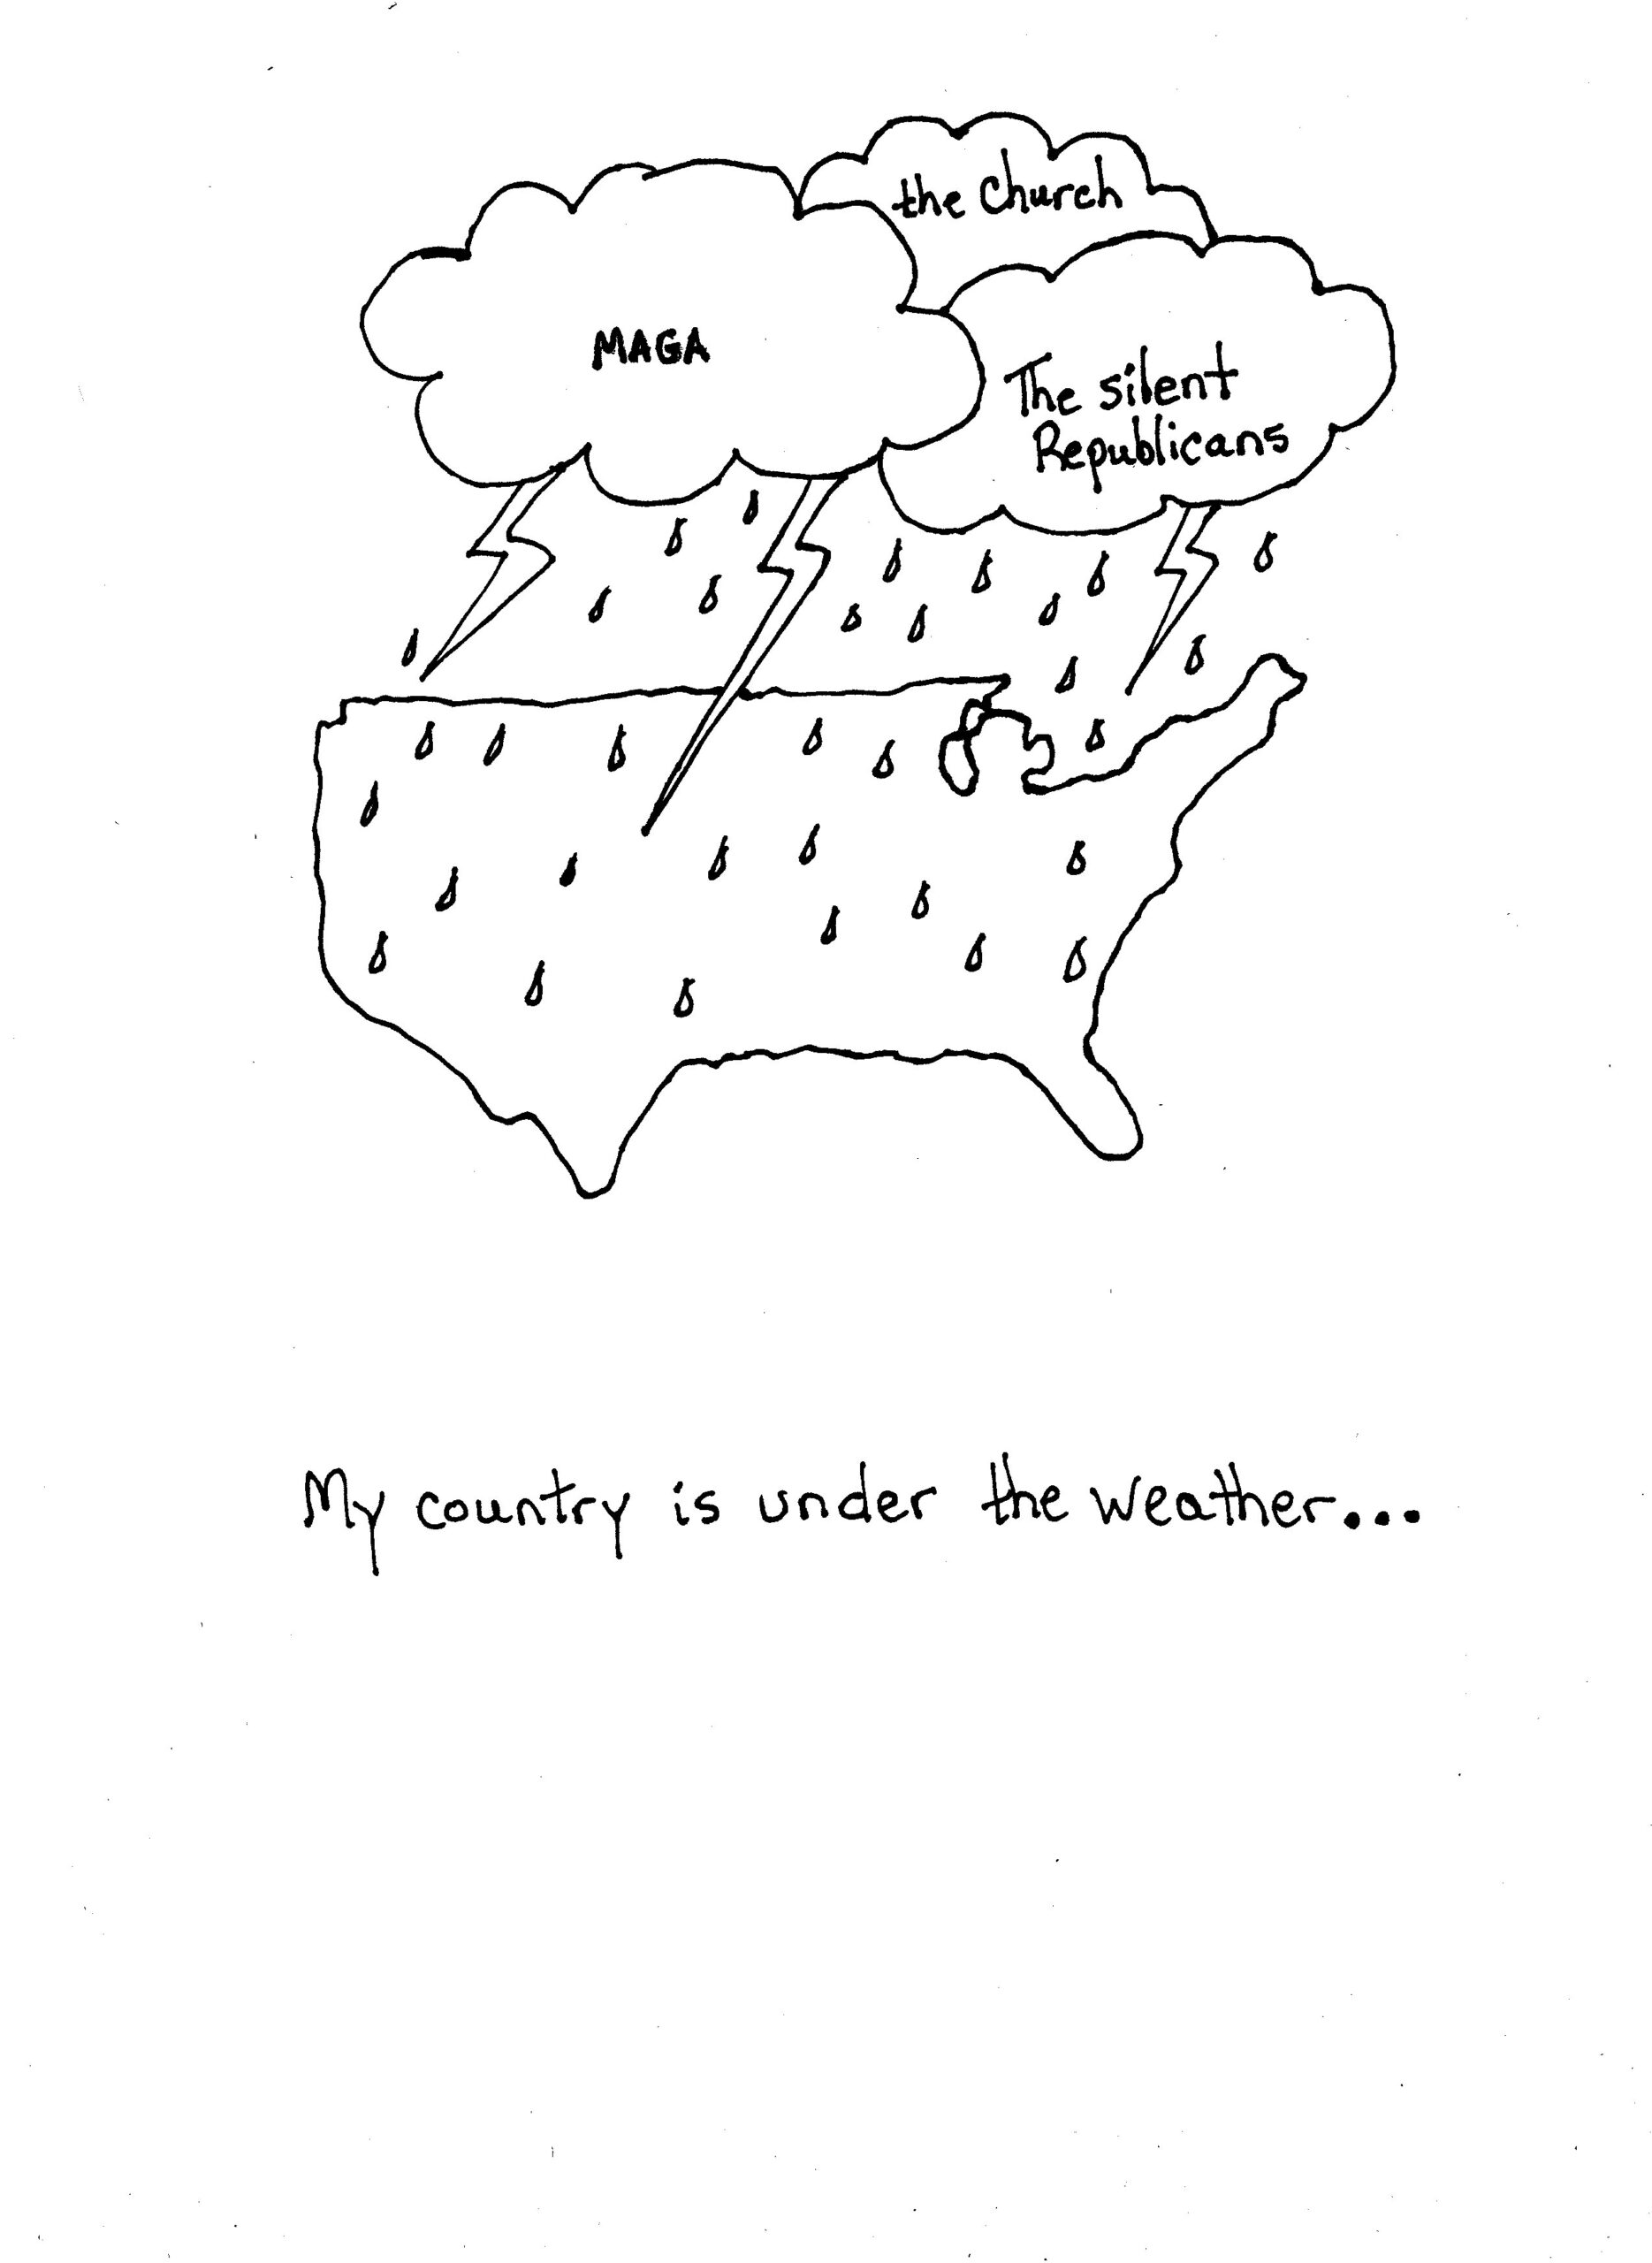 the Church
MAGA
The silent
Republicans
My country is under the weather...